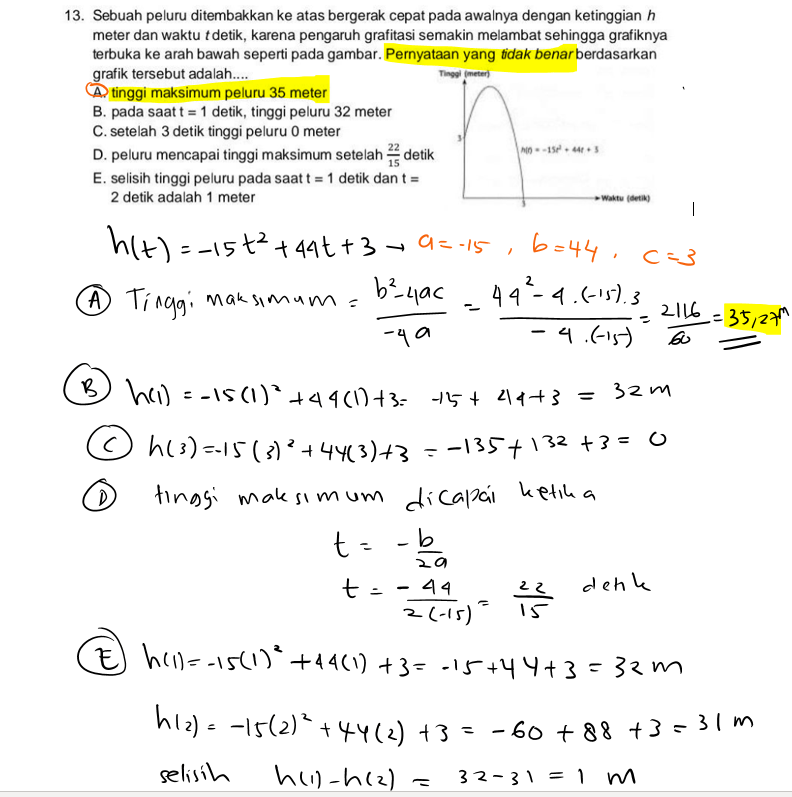 13. Sebuah peluru ditembakkan ke atas bergerak cepat pada awalnya dengan ketinggian h
meter dan waktu t detik, karena pengaruh grafitasi semakin melambat sehingga grafiknya
terbuka ke arah bawah seperti pada gambar. Pernyataan yang tidak benar berdasarkan
grafik tersebut adalah....
A. tinggi maksimum peluru 35 meter
B. pada saat t = 1 detik, tinggi peluru 32 meter
C. setelah 3 detik tinggi peluru 0 meter
D. peluru mencapai tinggi maksimum setelah 22/15 detik
E. selisih tinggi peluru pada saat t = 1 detik dan t =
2 detik adalah 1 meter
Tinggi (meter)
3
h(t) = -15t² + 44t + 3
Waktu (detik)
3
h(t) = -15t² + 44t + 3 → a = -15 , b = 44 , c = 3
A Tinggi maksimum = b²-4ac/-4a = 44² - 4.(-15).3/-4.(-15) = 2116/60 = 35,27m
B h(1) = -15(1)² + 44(1)+3 = -15 + 44+3 = 32 m
C h(3) = -15(3)² + 44(3)+3 = -135+132 +3 = 0
D tinggi maksimum dicapai ketika
t = -b/2a
t = -44/2(-15) = 22/15 detik
E h(1) = -15(1)² + 44(1) +3 = -15+44+3 = 32 m
h(2) = -15(2)² + 44(2) +3 = -60 + 88 +3 = 31 m
selisih h(1)-h(2) = 32-31 = 1 m